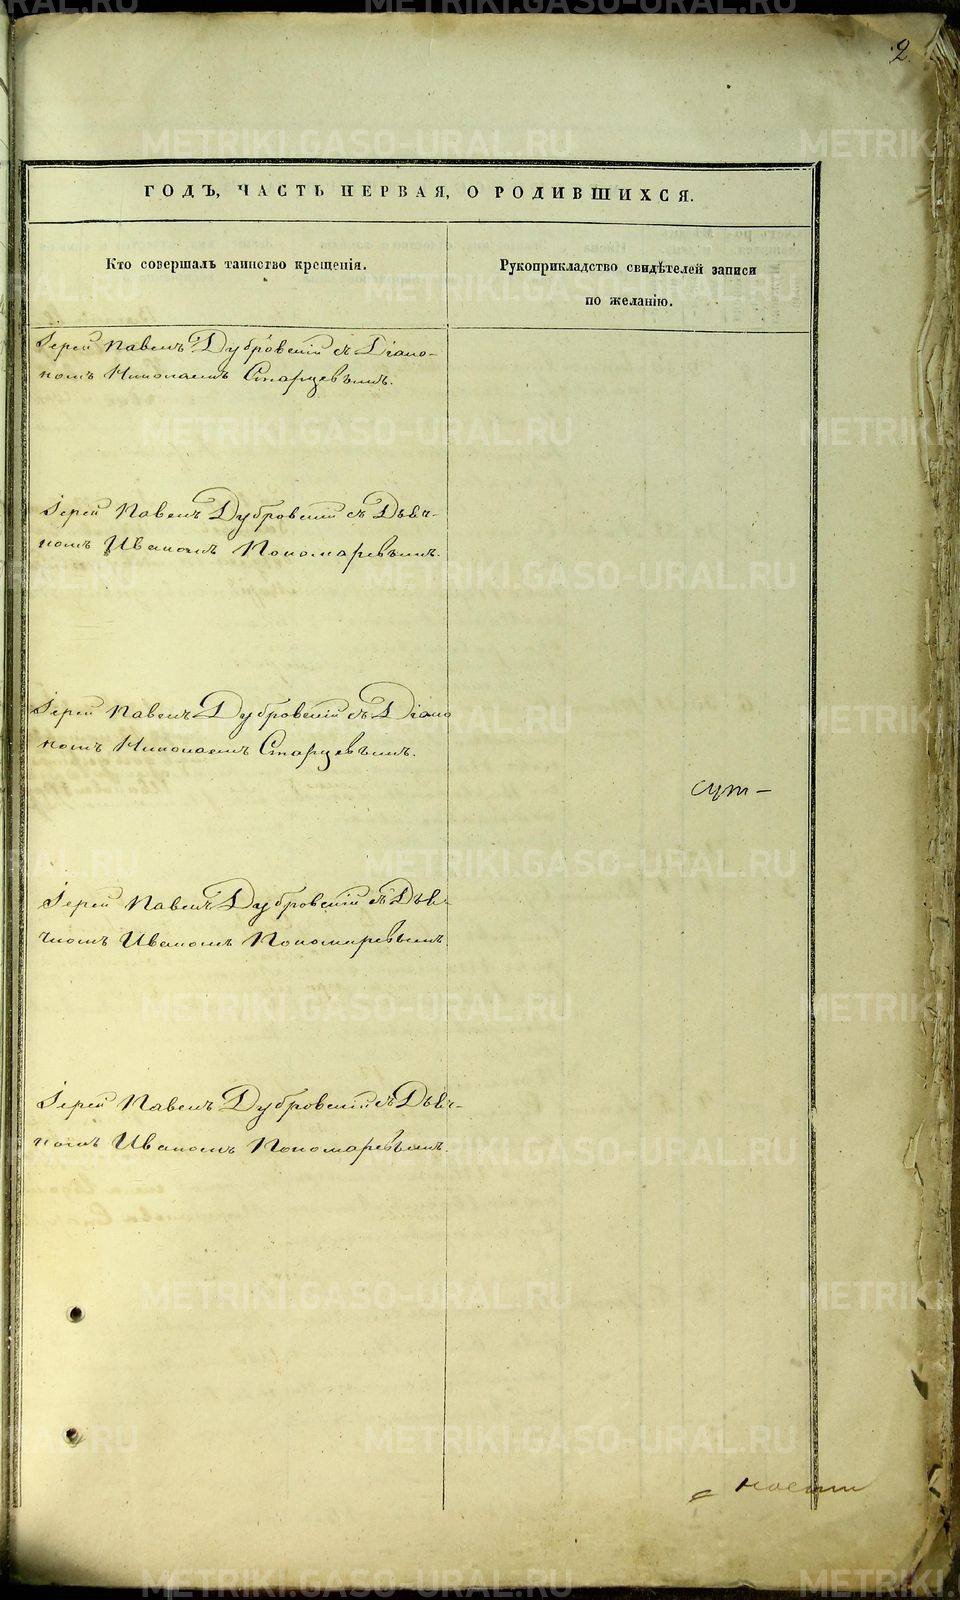 2.
ГОДЪ, ЧАСТЬ ПЕРВАЯ, О РОДИВШИХСЯ.
Кто совершалъ таинство крещенія.
Рукоприкладство свидѣтелей записи
по желанію.
Іерей Павелъ Дубровскій съ Діако-
номъ Николаемъ Старцевымъ.
Іерей Павелъ Дубровскій съ Дьяч-
комъ Иваномъ Пономаревымъ.
Іерей Павелъ Дубровскій съ Діако
номъ Николаемъ Старцевымъ.
сут-
Іерей Павелъ Дубровскій съ Дья-
чкомъ Иваномъ Пономаревымъ.
Іерей Павелъ Дубровскій съ Дьяч-
комъ Иваномъ Пономаревымъ.
METRIKI.GASO-URAL.RU